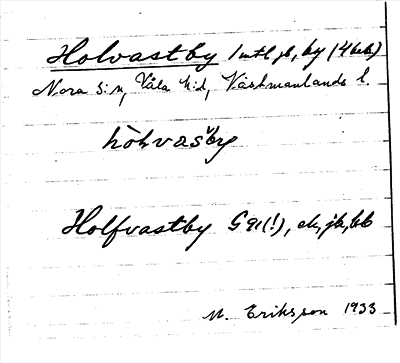 Holvastby 1 mtl jb, by (4 bebs)
Nora s:n, Våla h:d, Västmanlands l.
hòlvasby
Holfvastby G 91(!), ek, jb, kb
M. Eriksson 1933